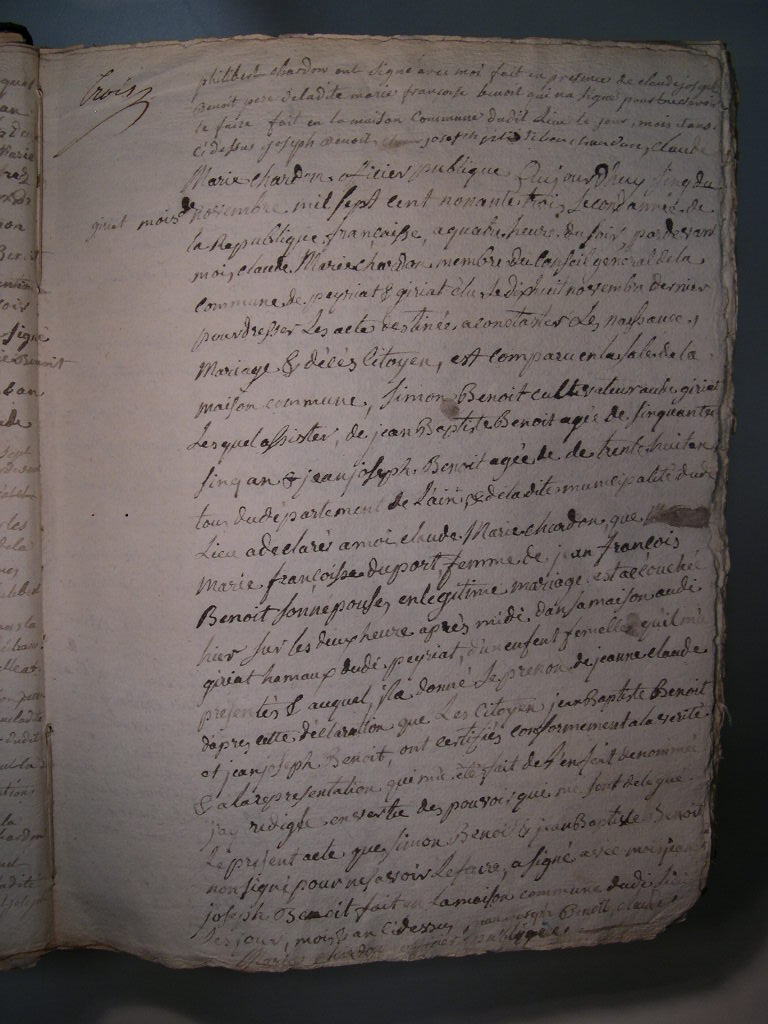 trois
philibert chardon ont signé avec moi fait en presence de claude joseph
Benoit pere de ladite marie françoise benoit qui na signé pour ne savoir
le faire fait en la maison commune dudit Lieu le jour, mois & an
cidessus joseph Benoit joseph chardon, claude
Marie chardon officier publique Dujourdhuy sinq du
giriat mois de novembre mil sept cent nonante trois, second année de
la Republique françaisse, a quatre heure du soir pardevant
moi, claude Marie chardon membre du Conseil géneral de la
commune de peyriat & giriat élus le dixhuit novembre dernier
pour dresser Les acte destinés a constater Les naissance,
Mariage & décès Citoyen, est comparu en la sale de la
maison commune, simon Benoit cultivateur audit giriat
Lesquel assister, de jean Baptiste Benoit agée de sinquante
sinq an & jean joseph Benoit agée de de trente huit an
tous du département de Lain, & de ladite municipalité dudi
Lieu a declarés a moi claude Marie chardon, que
Marie françoisse duport, femme de jean françois
Benoit son népouse, en legitime mariage, est accouchée
hier sur les deux heure après midi dans sa maison audi
giriat hamaux dudi peyriat, d'un enfent femelle quil mà
presentés & auquel, il a donné le prenon de jeanne claude
dàpres cette déclaration que Les Citoyen jean Baptiste Benoit
et jean joseph Benoit, ont certifiés conformement a la verité
& a la representation qui mà été fait de l'enfent denommée
jay redigée en vertu des pouvoir que me sont delegué
Le présent acte que simon Benoit & jean Baptiste Benoit
non signé pour ne savoir Le faire, a signé avec moi jean
joseph Benoit fait en La maison commune dudi Lieu
Les jour, mois & an cidessus, jean joseph Benoit, claude
Marie chardon officier publique